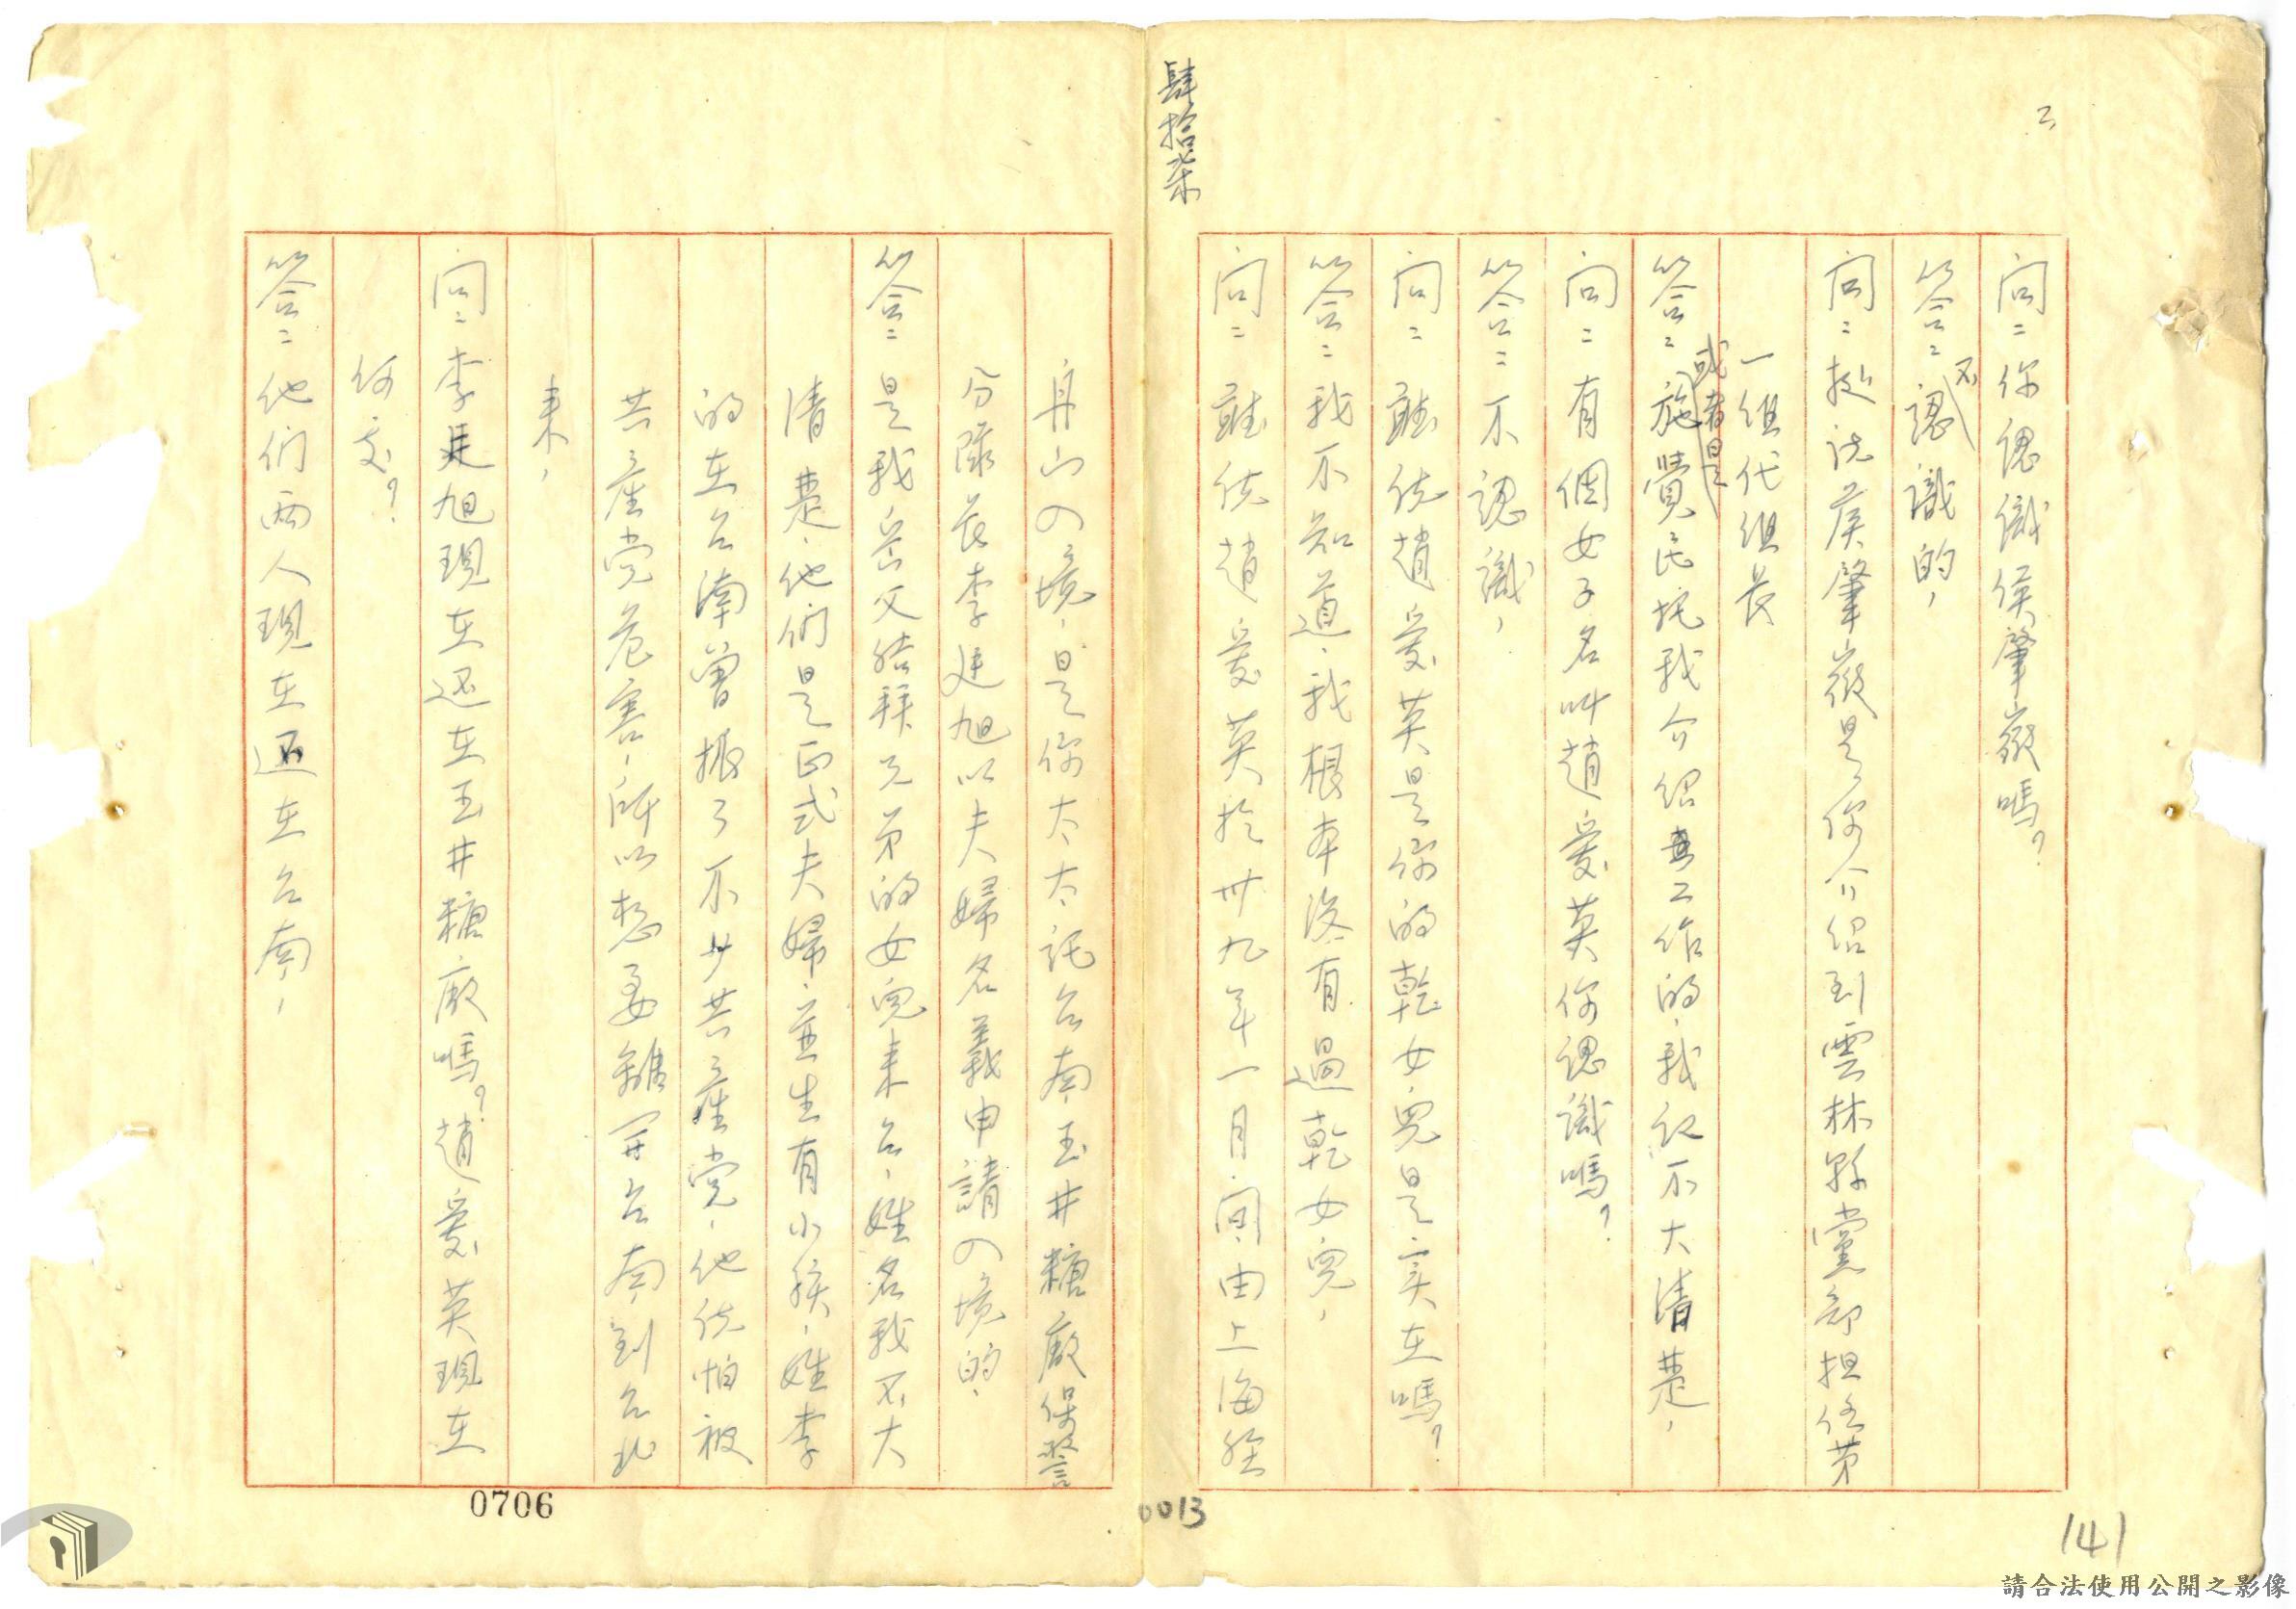 二
肆拾柒
問:你認識侯肇嶽嗎?
答:不認識的,
問:據說侯肇嶽是你介紹到雲林縣黨部担任第
一組代組長
答:或者是施覺民托我介紹去工作的,我記不大清楚,
問:有個女子名叫趙愛英你認識嗎?
答:不認識,
問:聽說趙愛英是你的乾女兒是实在嗎?
答:我不知道,我根本沒有過乾女兒,
問:聽說趙愛英於卅九年一月間由上海經
舟山入境,是你太太託台南玉井糖廠保警
分隊長李廷旭以夫婦名義申請入境的,
答:是我岳父結拜兄弟的女兒來台,姓名我不大
清楚,他們是正式夫婦,並生有小孩,姓李
的在台南曾撮了不少共產党,他說怕被
共產党危害,所以想要離開台南,到台北
來,
問:李廷旭現在还在玉井糖廠嗎?趙愛英現在
何处?
答:他們兩人現在还在台南,
0706
0013
141
請合法使用公開之影像